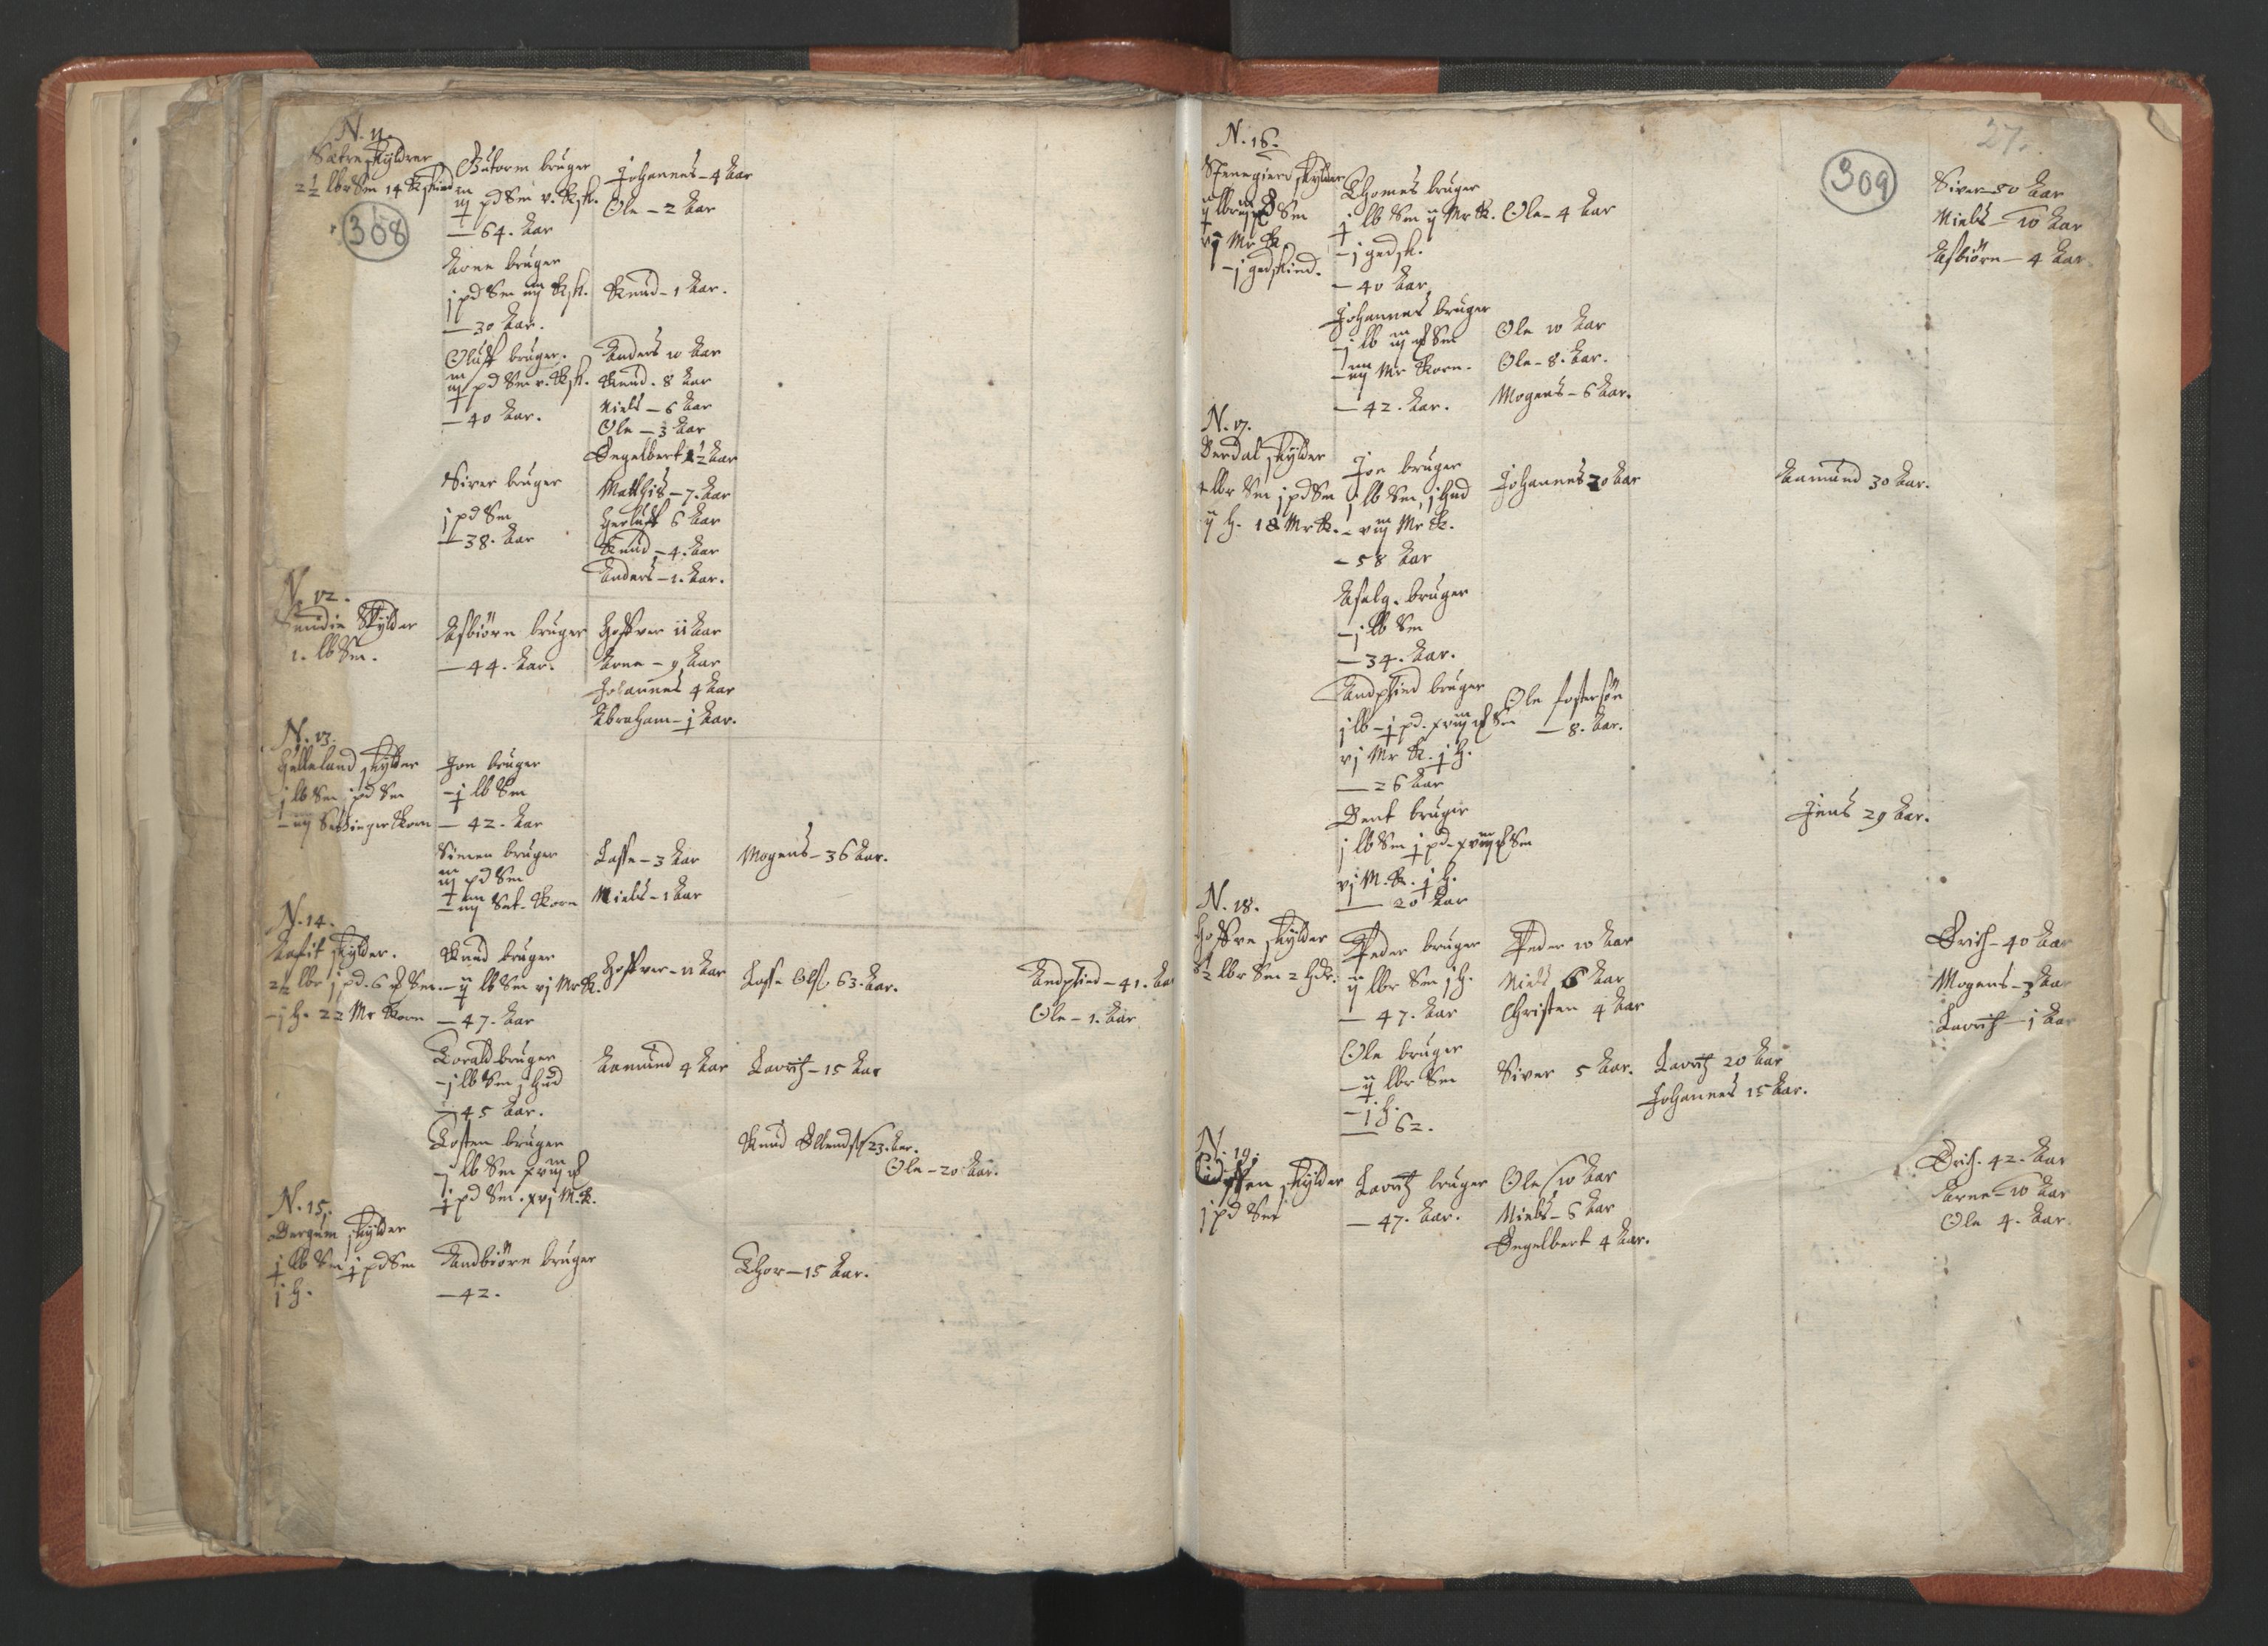 N. 11.
Sætre skylder
2½ lbr Sm 14 K skind
308
Gutorm bruger
iij pd Sm v. Ksk.
— 64. Aar
Johannes – 4 Aar
Ole – 2 Aar
Arne bruger
j pd Sm iiij Ksk.
— 30 Aar.
Knud – 1 Aar.
Oluff bruger.
iij pd Sm v. Ksk.
— 40 Aar.
Anders 10 Aar
Knud. 8 Aar
Niels – 6 Aar
Ole – 3 Aar
Engelbert 1½ Aar
Siver bruger
j pd Sm
— 38. Aar
Matthis – 7. Aar
Herluff 6 Aar
Knud – 4. Aar
Anders – 1. Aar.
N. 12.
Skylder
1. lb Sm.
Asbiørn bruger
— 44. Aar.
Hoffver 11 Aar
Arne – 9 Aar
Johannes 4 Aar
Abraham – j Aar.
N. 13.
Helleland skylder
j lb Sm j pd Sm
– iiij Settinger Korn
Jon bruger
– j lb Sm
— 42. Aar
Simen bruger
iij pd Sm
– iiij Set. Korn
Lasse – 3 Aar
Niels – 1 Aar
Mogens – 36 Aar.
N. 14.
skylder.
2½ lbr j pd. 6 Sm.
– j h. 22 Mr Korn
Knud bruger
– ij lb Sm vj Mr K.
— 47. Aar
Hoffver – 11 Aar
Lasse Ols. 63. Aar.
Andphind – 41. Aar
Ole – 1. Aar
Torald bruger
– j lb Sm j Hud
— 45 Aar.
Aamund 4 Aar
Lavritz – 15 Aar
Tosten bruger
– j lb Sm xviij
j pd Sm. xvj M. K.
Knud 23. Aar.
Ole – 20 Aar.
N. 15.
Bergum skylder
j lb Sm j pd Sm
j h.
Andbiørn bruger
— 42.
Thor – 15 Aar.
27.
309
N. 16.
Stenegierd skylder
ij lbr iij Sm
vj Mr K
– j gedskind.
Thomes bruger
j lb Sm ij Mr K.
– j gedsk.
— 40 Aar
Ole – 4 Aar
Siver – 50 Aar
Niels – 10 Aar
Asbiørn – 4 Aar
Johannes bruger
– j lb iij Sm
– iiij Mr Korn.
— 42. Aar.
Ole 10 Aar
Ole – 8. Aar.
Mogens – 6 Aar.
N. 17.
Berdal skylder
4 lbr Sm j pd Sm
ij h. 18 Mr K.
Jon bruger
j lb Sm, j Hud
– viij Mr K.
– 58 Aar
Johannes 20 Aar
Aamund 30 Aar.
Aslag. bruger
– j lb Sm
— 34. Aar.
Andphind bruger
j lb – j pd. xviij Sm
vj Mr K. j h.
— 26 Aar
Ole fostersøn
— 8. Aar.
Bent bruger
j lb Sm j pd – xviij Sm
vj M. K. j h.
— 20 Aar
Jens 29 Aar.
N. 18.
Hoffve skylder
5½ lbr Sm 2 hdr.
Peder bruger
ij lbr Sm j h.
— 47. Aar
Peder 10 Aar
Niels 6 Aar
Christen 4 Aar
Erich – 40 Aar
Mogens – 3 Aar
Lavritz – j Aar
Ole bruger
– ij lbr Sm
– j h.
— 62.
Siver 5 Aar.
Lavritz 20 Aar
Johannes 15 Aar.
N. 19.
skylder
j pd Sm
Lavritz bruger
— 47. Aar.
Ole 10 Aar
Niels – 6 Aar
Engelbert 4 Aar.
Erich. 42. Aar
Arne – 10 Aar
Ole 4. Aar.